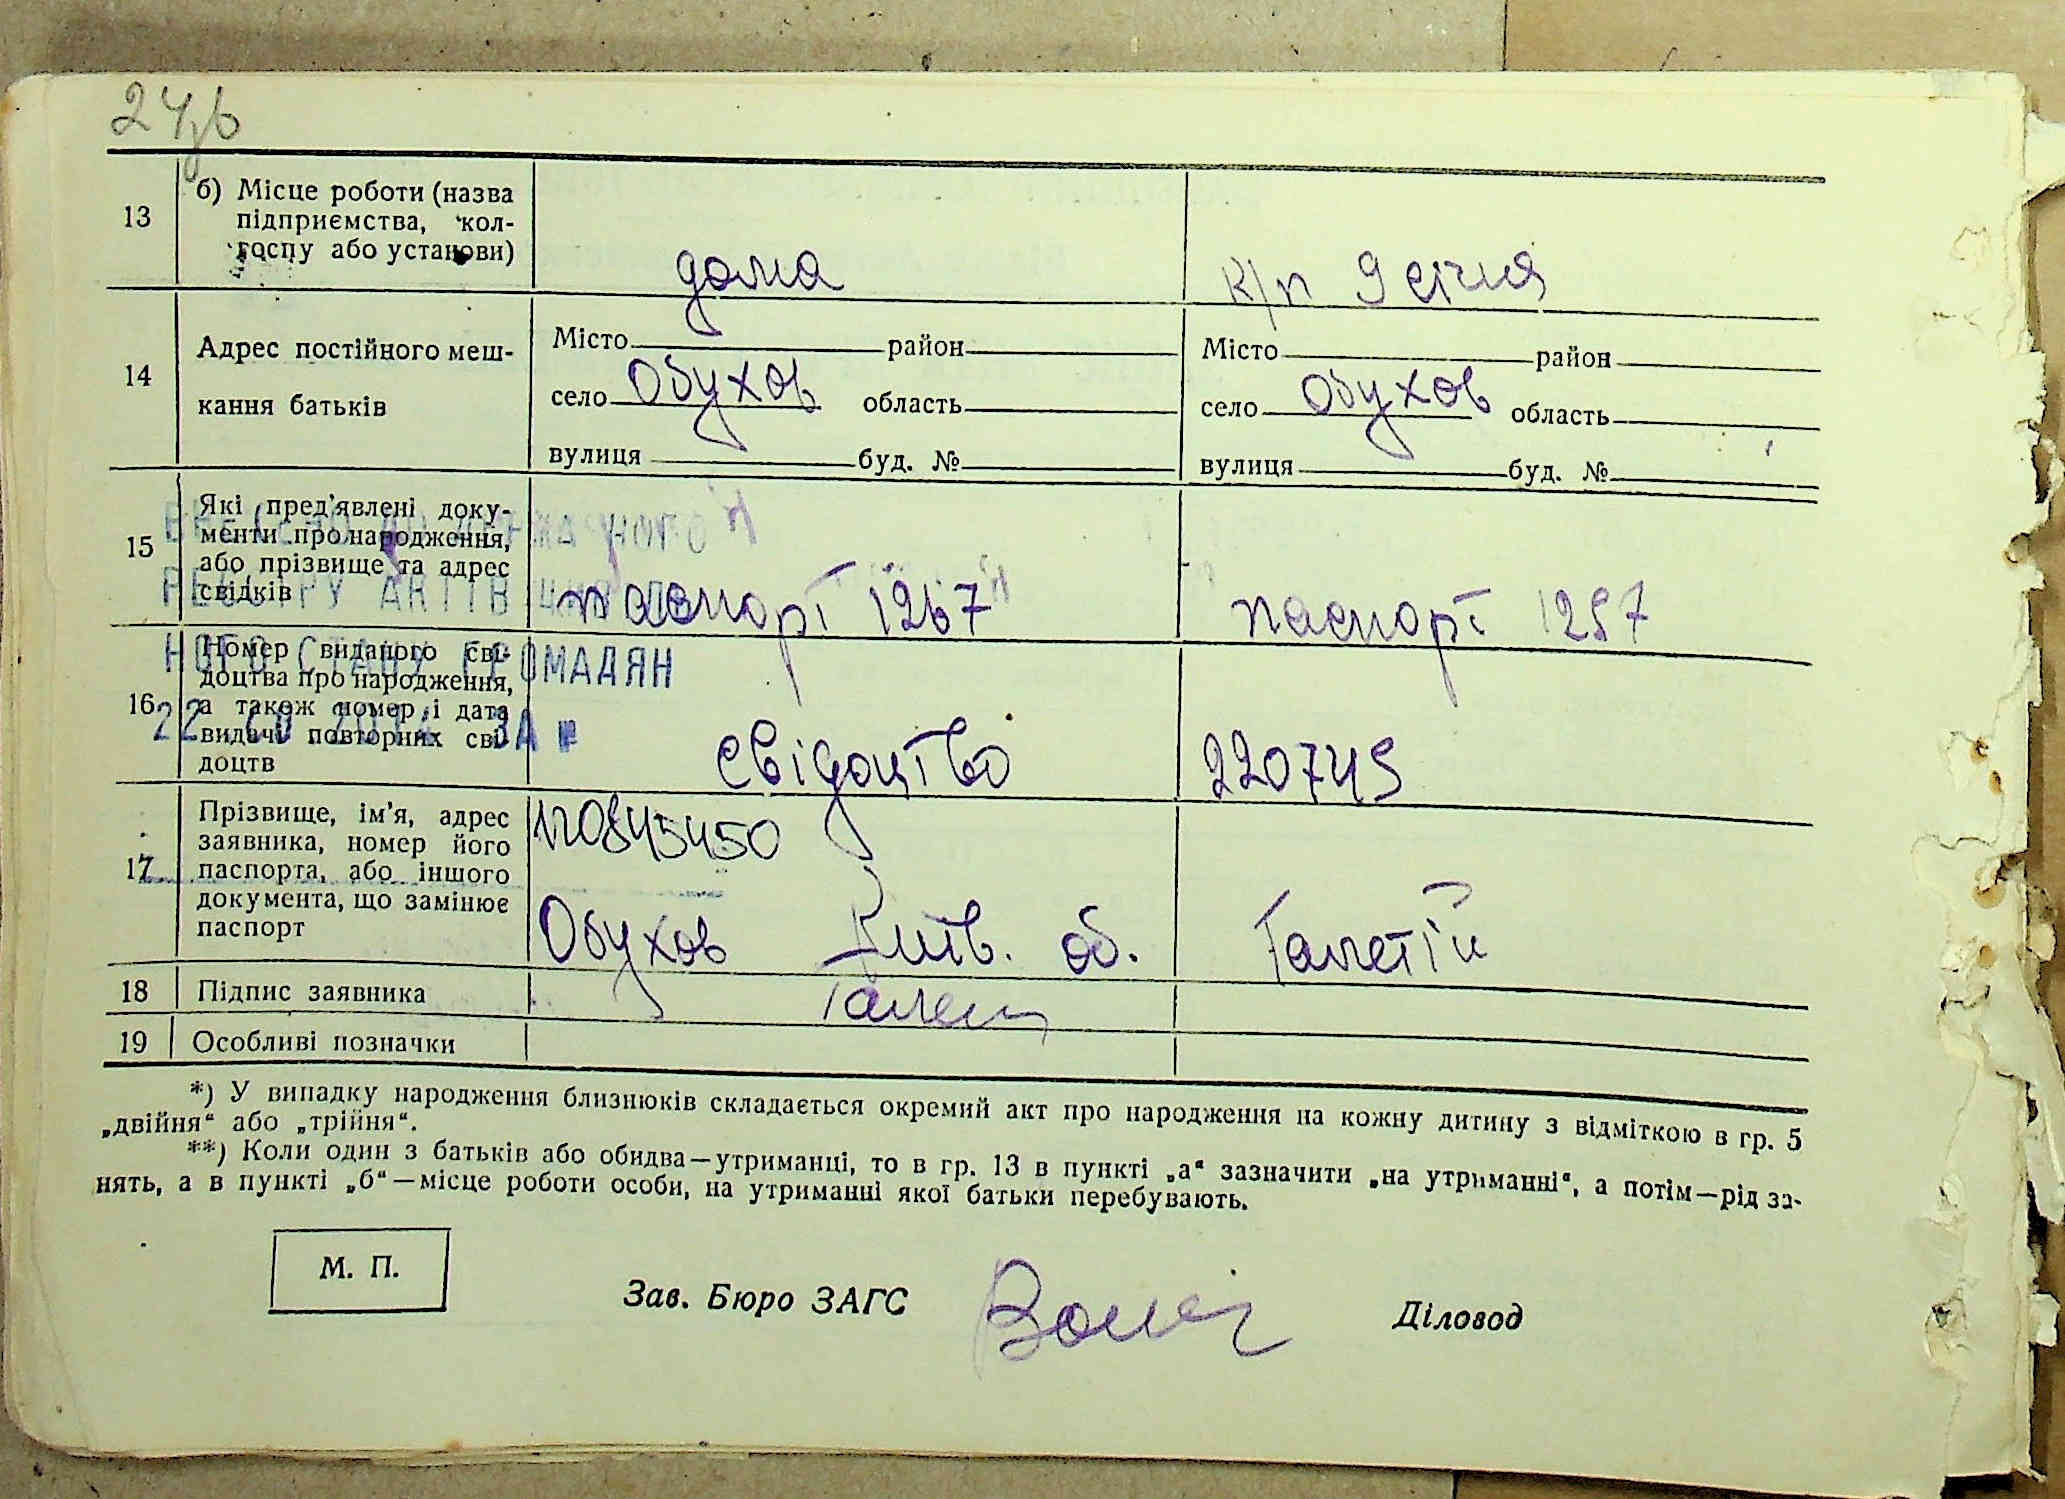 13
б) Місце роботи (назва
підприємства, кол-
госпу або установи)
дома
к/п 9 січня
14
Адрес постійного меш-
кання батьків
Місто район
село Обухов область
вулиця буд. №
Місто район
село Обухов область
вулиця буд. №
15
Які пред'явлені доку-
менти про народження,
або прізвище та адрес
свідків
паспорт 1267
паспорт 1257
РЕЄСТРУ АКТІВ
НОГО СТАНУ ГРОМАДЯН
16
Номер виданого сві-
доцтва про народження,
а також номер і дата
видачі повторних сві-
доцтв
свідоцтво
220745
17
Прізвище, ім'я, адрес
заявника, номер його
паспорта, або іншого
документа, що замінює
паспорт
Обухов Київ. об.
18
Підпис заявника
19
Особливі позначки
*) У випадку народження близнюків складається окремий акт про народження на кожну дитину з відміткою в гр. 5
„двійня“ або „трійня“.
**) Коли один з батьків або обидва—утриманці, то в гр. 13 в пункті „а“ зазначити „на утриманні“, а потім—рід за-
нять, а в пункті „б“—місце роботи особи, на утриманні якої батьки перебувають.
М. П.
Зав. Бюро ЗАГС
Діловод